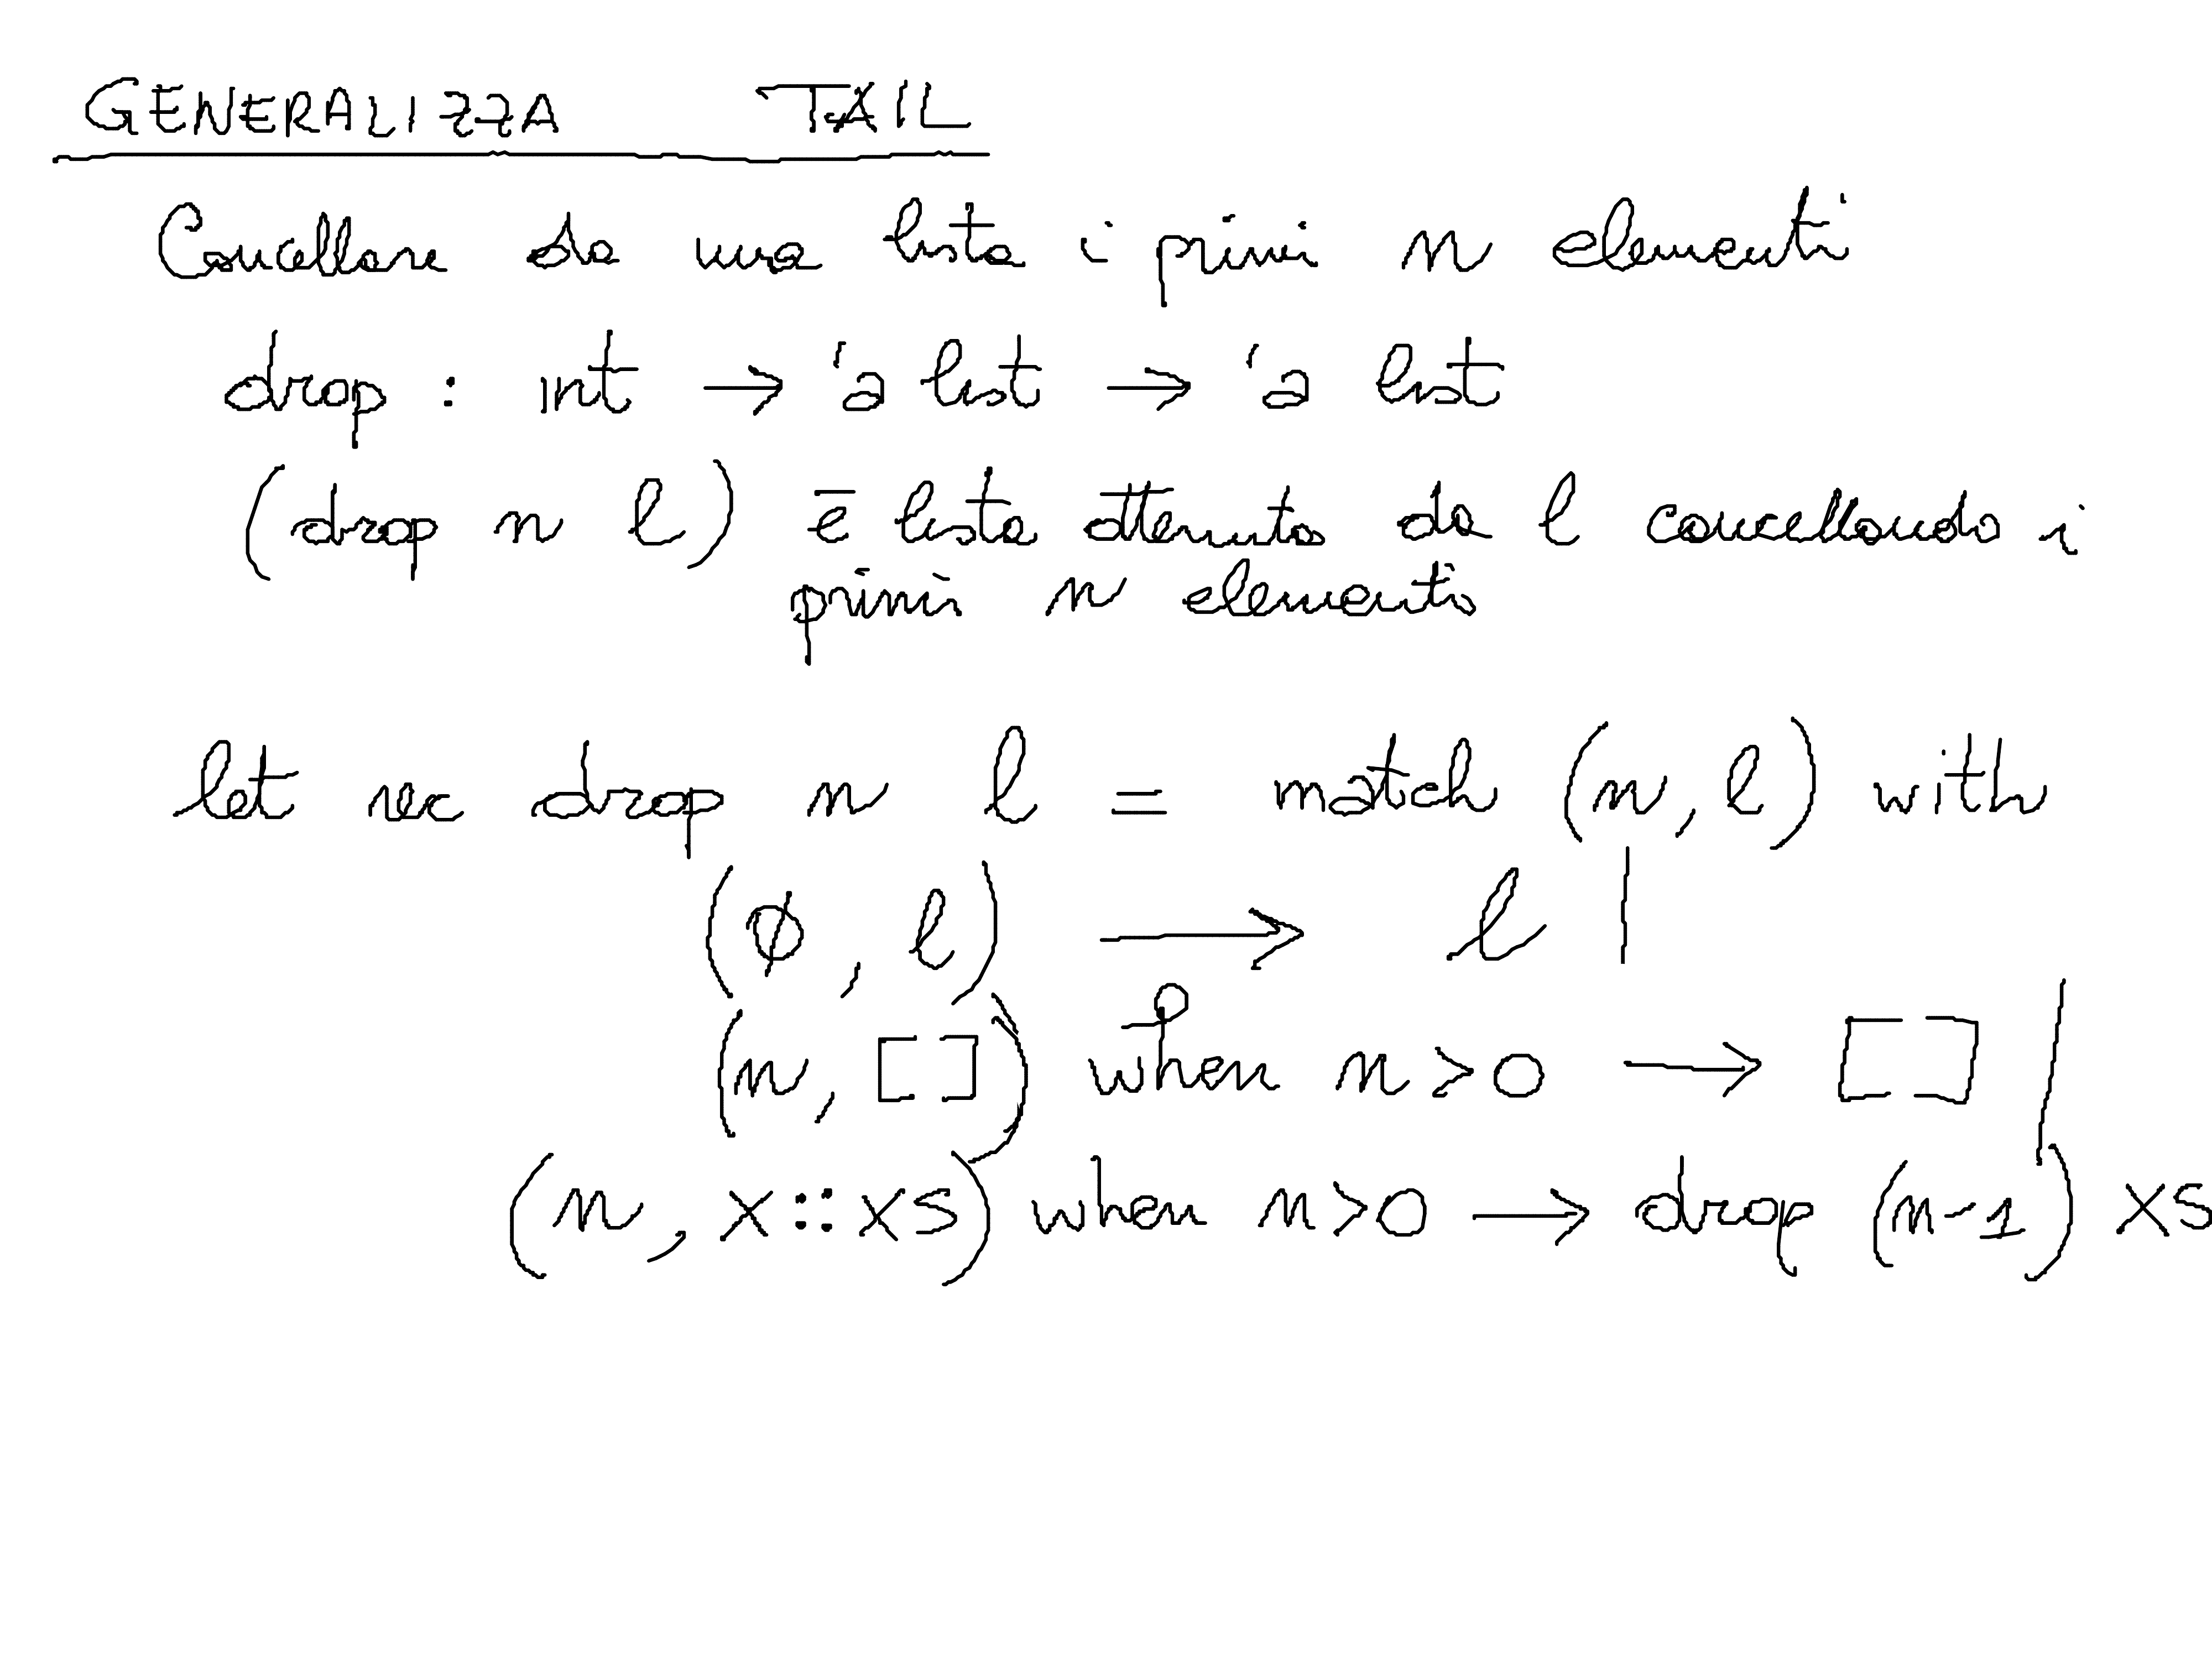 GENERALIZZA TAIL
Cancellare da una lista i primi n elementi
drop : int → 'a list → 'a list
(drop n l) è lista ottenuta da l cancellando i
primi n elementi
let rec drop n l = match (n, l) with
(0, l) → l |
(n, []) when n>0 → [] |
(n, x::xs) when n>0 → drop (n-1) xs